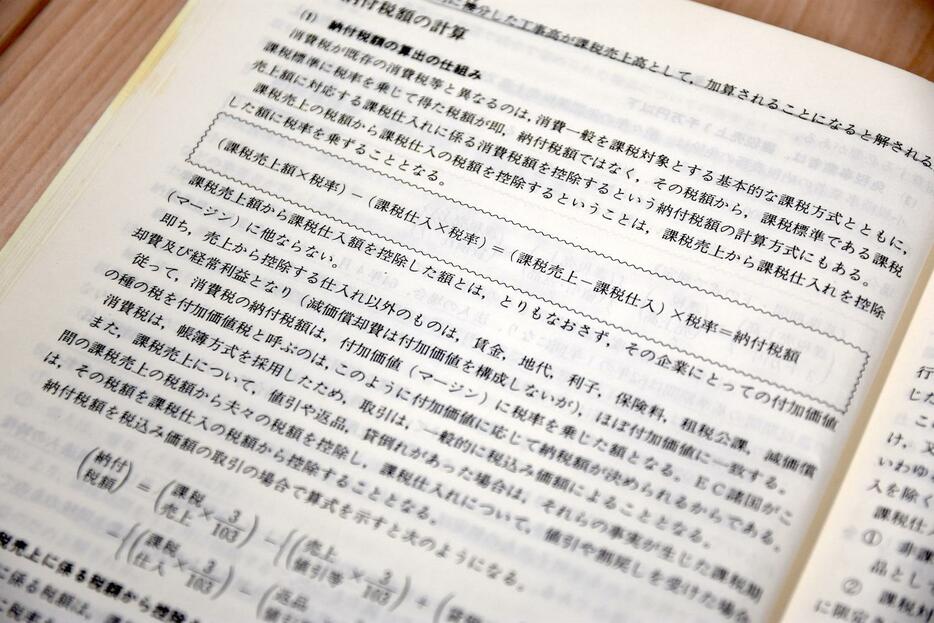 に機分した工事高が課税売上高として，加算されることになると解される
納付税額の計算
(1) 納付税額の算出の仕組み
消費税が既存の消費税等と異なるのは，消費一般を課税対象とする基本的な課税方式とともに，
課税標準に税率を乗じて得た税額が即，納付税額ではなく，その税額から，課税標準である課税
売上額に対応する課税仕入れに係る消費税額を控除するという納付税額の計算方式にもある。
課税売上の税額から課税仕入の税額を控除するということは，課税売上から課税仕入れを控除
した額に税率を乗ずることとなる。
(課税売上額×税率)－(課税仕入×税率)＝(課税売上－課税仕入)×税率＝納付税額
課税売上額から課税仕入額を控除した額とは，とりもなおさず，その企業にとっての付加価値
(マージン)に他ならない。
即ち，売上から控除する仕入れ以外のものは，賃金，地代，利子，保険料，租税公課，減価償
却費及び経常利益となり(減価償却費は付加価値を構成しないが)，ほぼ付加価値に一致する。
従って，消費税の納付税額は，付加価値(マージン)に税率を乗じた額となる。EC諸国がこ
の種の税を付加価値税と呼ぶのは，このように付加価値に応じて納税額が決められるからである。
消費税は，帳簿方式を採用したため，取引は，一般的に税込み価額によることとなる。
また，課税売上について，値引や返品，貸倒れがあった場合は，それらの事実が生じた課税期
間の課税売上の税額から夫々の税額を控除し，課税仕入れについて，値引や割戻しを受けた場合
は，その税額を課税仕入の税額から控除することとなる。
納付税額を税込み価額の取引の場合で算式を示すと次のようになる。
(納付税額)＝(課税売上×3/103)－{(売上値引等×3/103)＋(
－{(課税仕入×3/103)－(返品
税売上に係る税額から控除
に係る税額は，
に税率
行
じた
こ
け，又
いわゆ
入を除く
課税仕
① 非課
品とし
課税対
②
に限定